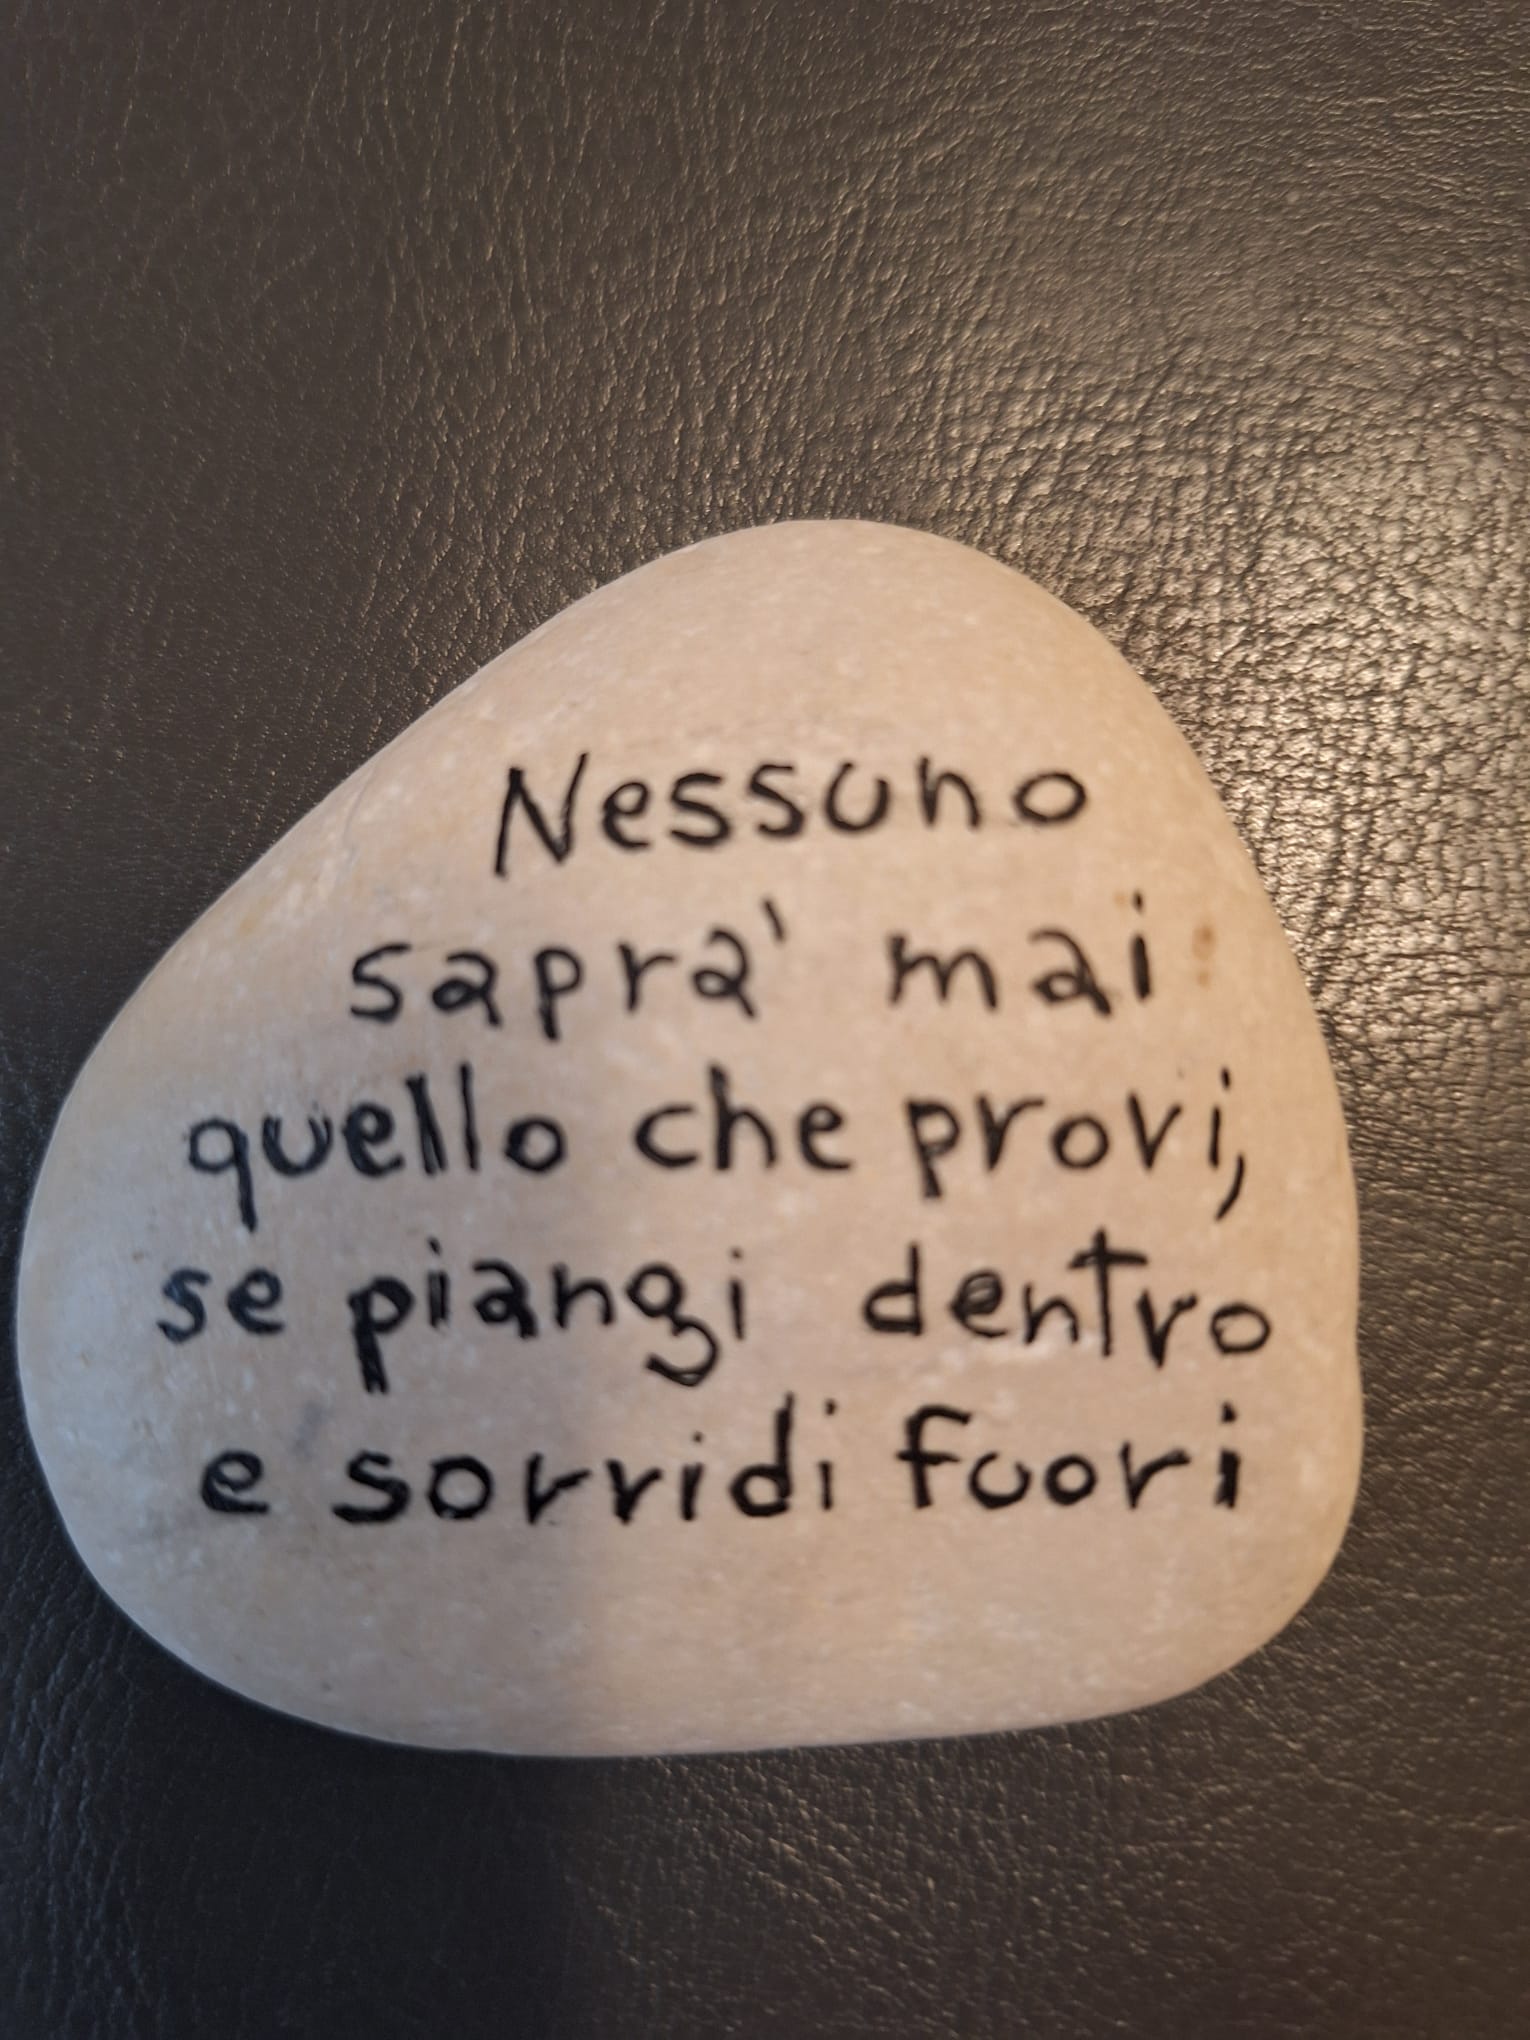 Nessuno
sapra' mai
quello che provi,
se piangi dentro
e sorridi fuori